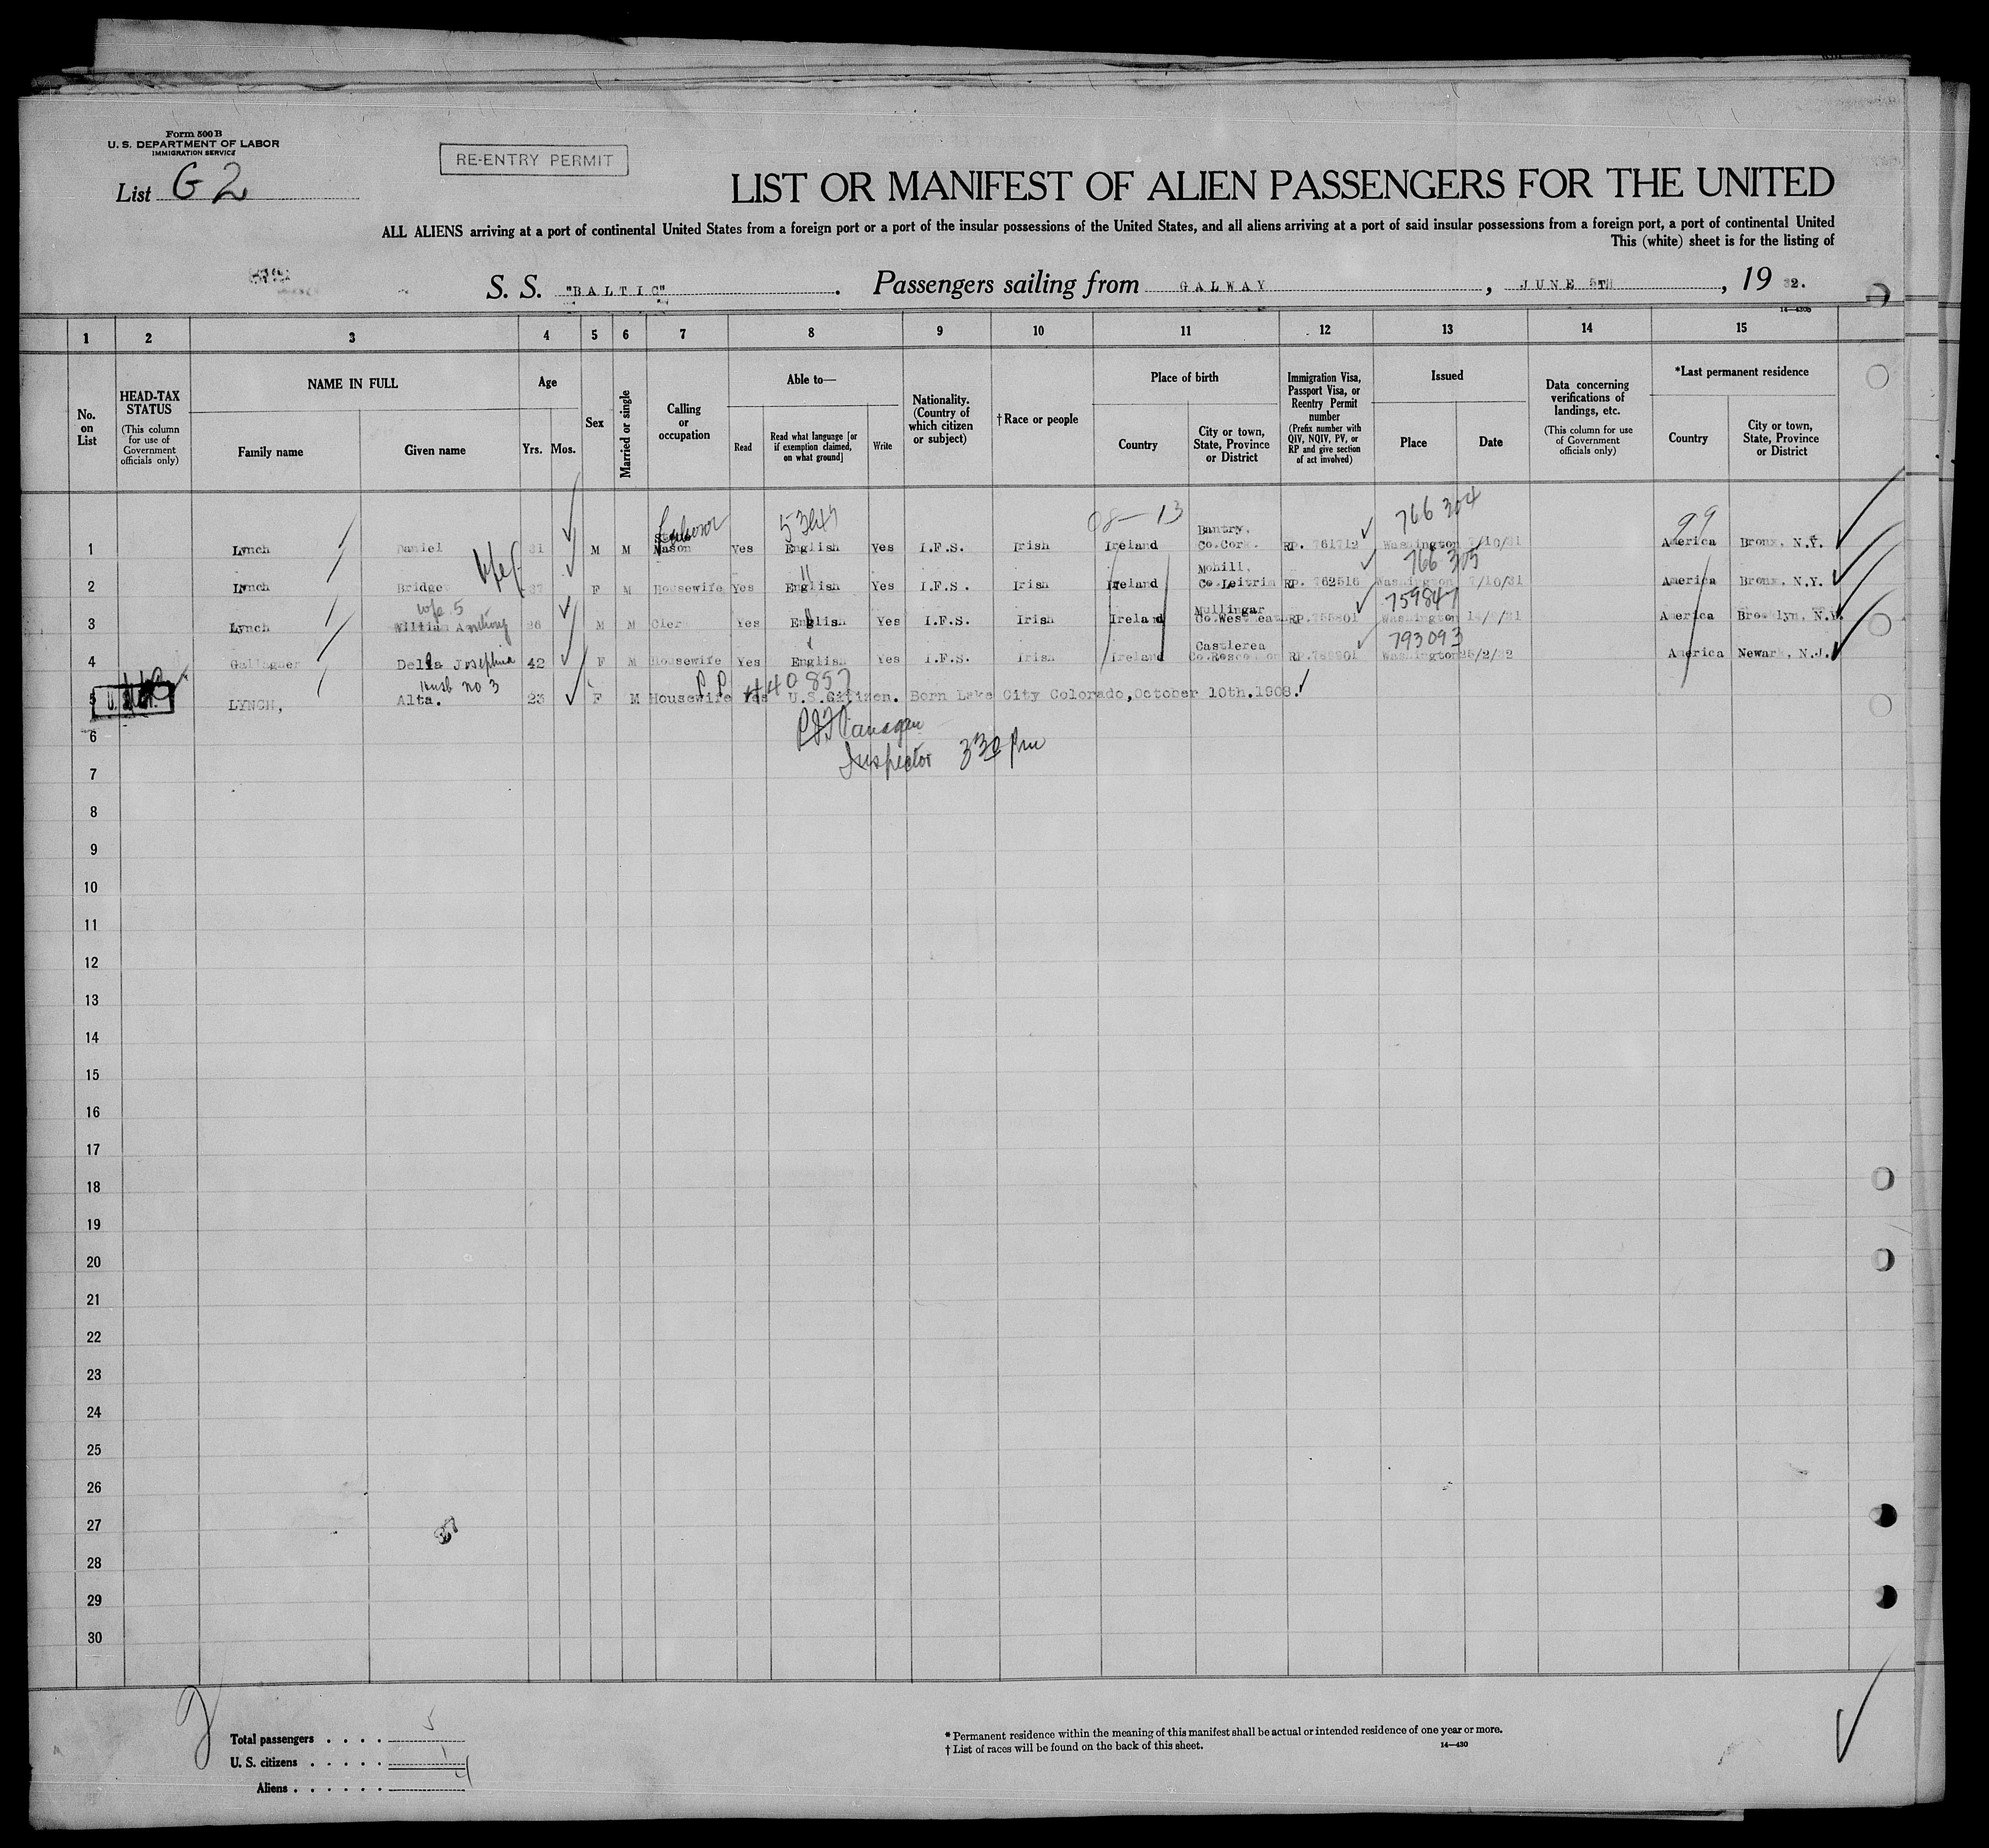 Form 500 B
U. S. DEPARTMENT OF LABOR
IMMIGRATION SERVICE
List G2
RE-ENTRY PERMIT
LIST OR MANIFEST OF ALIEN PASSENGERS FOR THE UNITED
ALL ALIENS arriving at a port of continental United States from a foreign port or a port of the insular possessions of the United States, and all aliens arriving at a port of said insular possessions from a foreign port, a port of continental United
This (white) sheet is for the listing of
S. S. "BALTIC". Passengers sailing from GALWAY, JUNE 5TH, 19 32.
14—430B
1 2 3 4 5 6 7 8 9 10 11 12 13 14 15
No. on List
HEAD-TAX STATUS
(This column for use of Government officials only)
NAME IN FULL
Family name
Given name
Age
Yrs.
Mos.
Sex
Married or single
Calling or occupation
Able to—
Read
Read what language [or if exemption claimed, on what ground]
Write
Nationality. (Country of which citizen or subject)
†Race or people
Place of birth
Country
City or town, State, Province or District
Immigration Visa, Passport Visa, or Reentry Permit number
(Prefix number with QIV, NQIV, PV, or RP and give section of act involved)
Issued
Place
Date
Data concerning verifications of landings, etc.
(This column for use of Government officials only)
*Last permanent residence
Country
City or town, State, Province or District
08—13 766 304 99
1 Lynch Daniel 31 M M Mason Yes English Yes I.F.S. Irish Ireland Bantry, Co.Cork. RP. 761712 Washington 7/10/31 America Bronx, N.Y.
wife 766 305
2 Lynch Bridget F M Housewife Yes English Yes I.F.S. Irish Ireland Mohill, Co.Leitrim RP. 762516 Washington 7/10/31 America Bronx, N.Y.
wife 5 759847
3 Lynch William 26 M M Clerk Yes English Yes I.F.S. Irish Ireland Mullingar Co.Westmeath RP. Washington America Brooklyn, N.Y.
793093
4 Gallagher Delia Josephine 42 F M Housewife Yes English Yes I.F.S. Irish Ireland Castlerea Co.Roscommon RP. Washington 25/2/32 America Newark, N.J.
Husb no 3 P P 440857
5 LYNCH, Alta. 23 F M Housewife Yes U.S.Citizen. Born Lake City Colorado, October 10th.1908.
6
Inspector 3 30 pm
7
8
9
10
11
12
13
14
15
16
17
18
19
20
21
22
23
24
25
26
27
28
29
30
Total passengers . . . . 5
U. S. citizens . . . . . 1
Aliens . . . . . . 4
* Permanent residence within the meaning of this manifest shall be actual or intended residence of one year or more.
† List of races will be found on the back of this sheet.
14—430